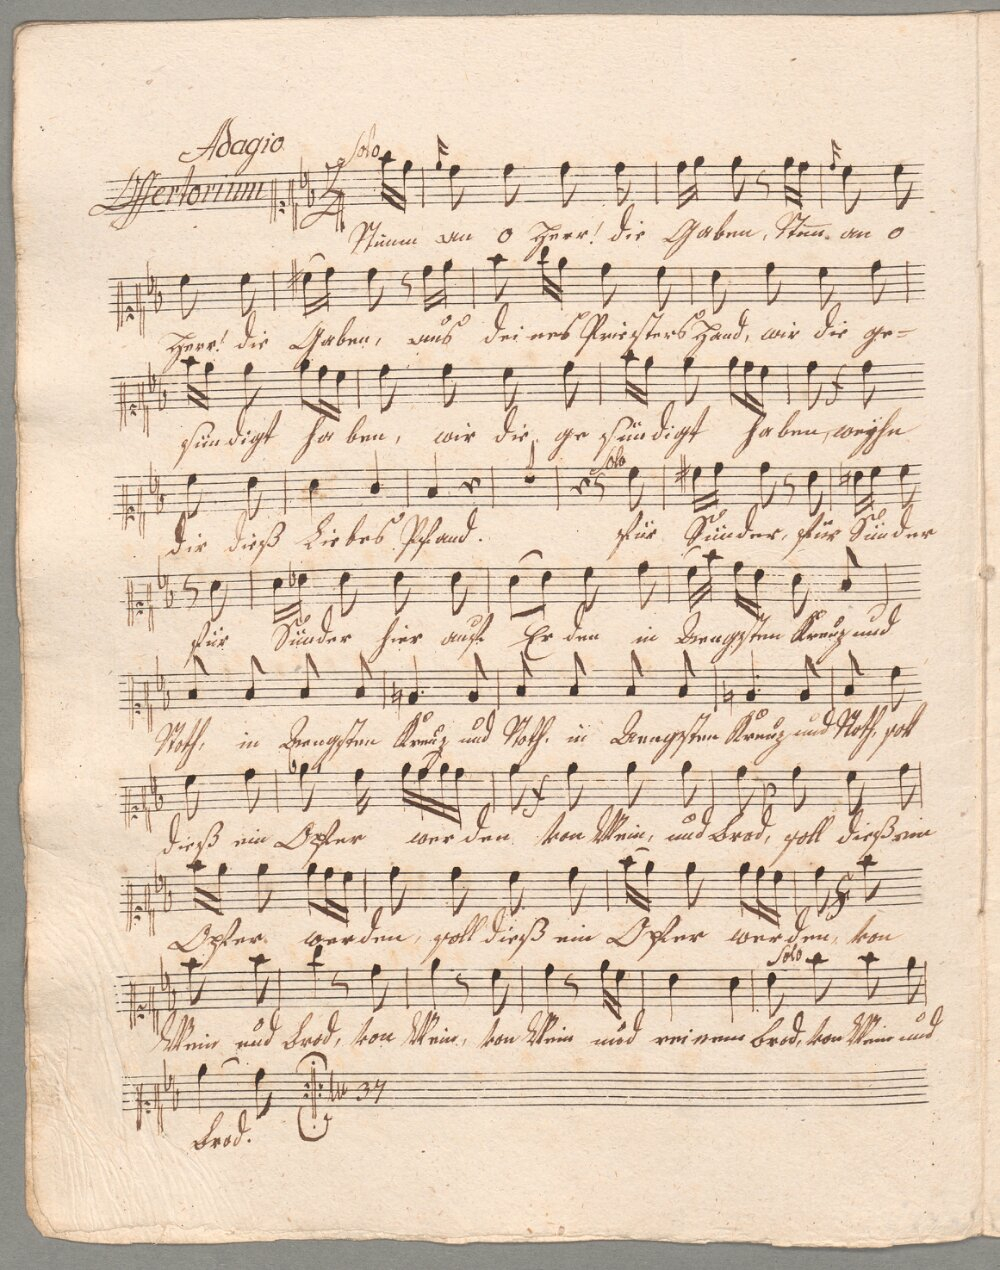 Adagio
Offertorium
Solo
Nimm an o Herr! die Gaben, Nim̄ an o
Herr! die Gaben, aus deines Priesters Hand, wir die ge-
sündigt haben, wir die gesündigt haben, weyhn
dir dieß Liebes Pfand.
Solo
für Sünder, für Sünder
für Sünder hier auf Erden in Aengsten Kreuz und
Noth, in Aengsten Kreuz und Noth, in Aengsten Kreuz und Noth, soll
dieß ein Opfer werden von Wein, und Brod, soll dieß ein
Opfer werden, soll dieß ein Opfer werden, von
Solo
Wein und Brod, von Wein, von Wein und reinem Brod, von Wein und
37
Brod.